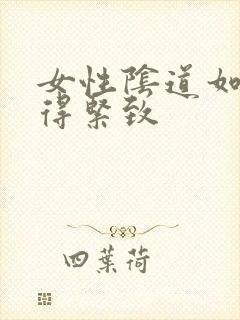 女性陰道如
得緊致
四葉荷